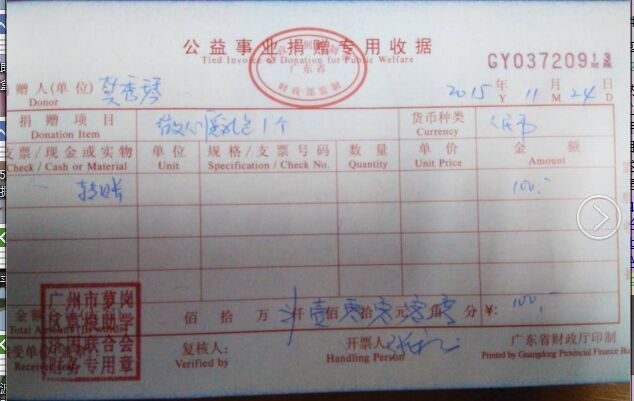 公益事业捐赠专用收据
Tied Invoice of Donation for Public Welfare
广东省
财政部监制
GY03720913
赠人(单位)
Donor
2015年 11月 24日
Y M D
捐赠项目
Donation Item
1个
货币种类
Currency
人民币
支票/现金或实物
Check / Cash or Material
单位
Unit
规格/支票号码
Specification / Check No.
数量
Quantity.
单价
Unit Price
金额
Amount
转账
100.-
佰 拾 万 仟壹佰零拾零元零角零分 ¥: 100.-
广州市萝岗
助学
济困联合会
财务专用章
复核人:
Verified by
开票人:
Handling Person
广东省财政厅印制
Printed by Guangdong Provincial Finance Bu